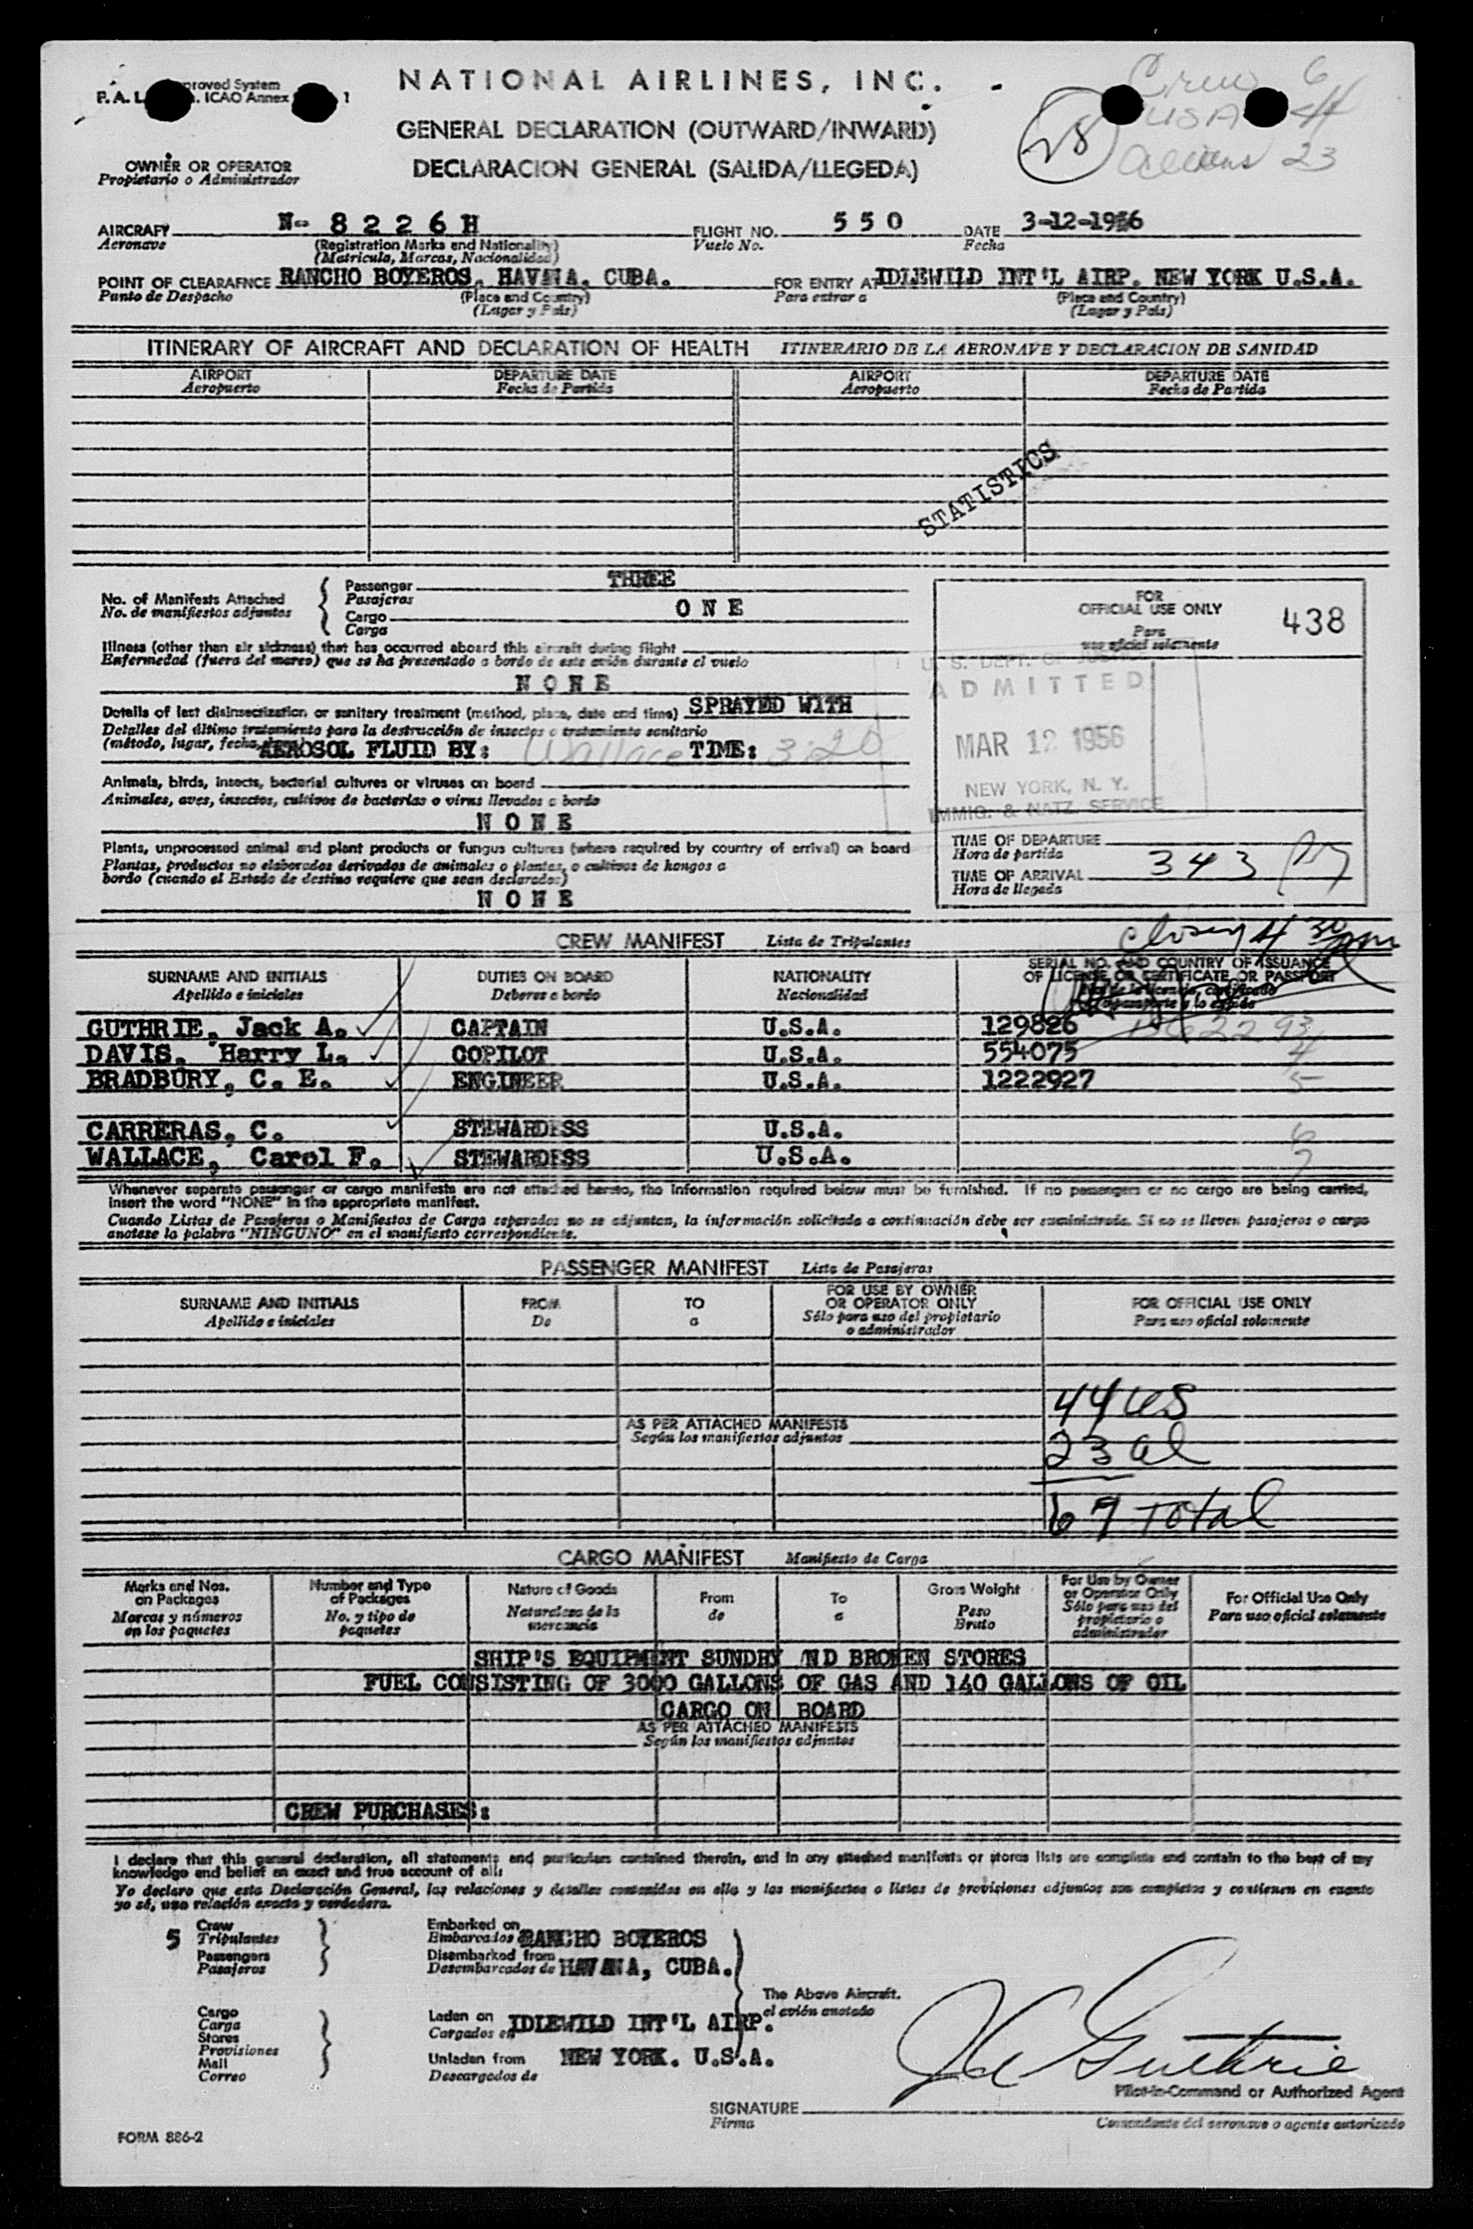 NATIONAL AIRLINES, INC.
GENERAL DECLARATION (OUTWARD/INWARD)
DECLARACION GENERAL (SALIDA/LLEGEDA)
Crew 6
USA 44
Aliens 23
28
proved System
F. A. L. ICAO Annex 1
OWNER OR OPERATOR
Propietario o Administrador
AIRCRAFT N- 8 2 2 6 H FLIGHT NO. 5 5 0 DATE 3-12-1956
Aeronave (Registration Marks and Nationality) Vuelo No. Fecha
(Matricula, Marcas, Nacionalidad)
POINT OF CLEARAFNCE RANCHO BOYEROS, HAVANA, CUBA. FOR ENTRY AT IDLEWILD INT'L AIRP. NEW YORK U.S.A.
Punto de Despacho (Place and Country) Para entrar a (Place and Country)
(Lugar y País) (Lugar y País)
ITINERARY OF AIRCRAFT AND DECLARATION OF HEALTH ITINERARIO DE LA AERONAVE Y DECLARACION DE SANIDAD
AIRPORT DEPARTURE DATE AIRPORT DEPARTURE DATE
Aeropuerto Fecha de Partida Aeropuerto Fecha de Partida
STATISTICS
No. of Manifests Attached
No. de manifiestos adjuntos
Passenger THREE
Pasajeros
Cargo O N E
Carga
Illness (other than air sickness) that has occurred aboard this aircraft during flight
Enfermedad (fuera del mareo) que se ha presentado a bordo de este avión durante el vuelo
N O N E
Details of last disinsectization or sanitary treatment (method, place, date and time) SPRAYED WITH
Detalles del último tratamiento para la destrucción de insectos o tratamiento sanitario
(método, lugar, fecha AEROSOL FLUID BY: Wallace TIME: 3:20
Animals, birds, insects, bacterial cultures or viruses on board
Animales, aves, insectos, cultivos de bacterias o virus llevados a bordo
N O N E
Plants, unprocessed animal and plant products or fungus cultures (where required by country of arrival) on board
Plantas, productos no elaborados derivados de animales o plantas, o cultivos de hongos a
bordo (cuando el Estado de destino requiere que sean declarados)
N O N E
FOR
OFFICIAL USE ONLY 438
Para
uso oficial solamente
U. S. DEPT. OF JUSTICE
ADMITTED
MAR 12 1956
NEW YORK, N. Y.
IMMIG. & NATZ. SERVICE
TIME OF DEPARTURE
Hora de partida
TIME OF ARRIVAL 343
Hora de llegada
closing 4 30 pm
CREW MANIFEST Lista de Tripulantes
SURNAME AND INITIALS DUTIES ON BOARD NATIONALITY SERIAL NO. AND COUNTRY OF ISSUANCE
OF LICENSE OR CERTIFICATE OR PASSPORT
Apellido e iniciales Deberes a bordo Nacionalidad
GUTHRIE, Jack A. CAPTAIN U.S.A. 129826
DAVIS, Harry L. COPILOT U.S.A. 554075 4
BRADBURY, C. E. ENGINEER U.S.A. 1222927 5
CARRERAS, C. STEWARDESS U.S.A. 6
WALLACE, Carol F. STEWARDESS U.S.A. 7
Whenever separate passenger or cargo manifests are not attached hereto, the information required below must be furnished. If no passengers or no cargo are being carried,
insert the word "NONE" in the appropriate manifest.
Cuando Listas de Pasajeros o Manifiestos de Carga separados no se adjuntan, la información solicitada a continuación debe ser suministrada. Si no se lleven pasajeros o carga
anotese la palabra "NINGUNO" en el manifiesto correspondiente.
PASSENGER MANIFEST Lista de Pasajeros
SURNAME AND INITIALS FROM TO FOR USE BY OWNER
OR OPERATOR ONLY FOR OFFICIAL USE ONLY
Apellido e iniciales De a Sólo para uso del propietario
o administrador Para uso oficial solamente
44 US
AS PER ATTACHED MANIFESTS
Según los manifiestos adjuntos
23 al
67 Total
CARGO MANIFEST Manifiesto de Carga
Marks and Nos.
on Packages
Marcas y números
en los paquetes
Number and Type
of Packages
No. y tipo de
paquetes
Nature of Goods
Naturaleza de la
mercancia
From
de
To
a
Gross Weight
Peso
Bruto
For Use by Owner
or Operator Only
Sólo para uso del
propietario o
administrador
For Official Use Only
Para uso oficial solamente
SHIP'S EQUIPMENT SUNDRY ND BROKEN STORES
FUEL CONSISTING OF 3000 GALLONS OF GAS AND 140 GALLONS OF OIL
CARGO ON BOARD
AS PER ATTACHED MANIFESTS
Según los manifiestos adjuntos
CREW PURCHASES:
I declare that this general declaration, all statements and particulars contained therein, and in any attached manifests or stores lists are complete and contain to the best of my
knowledge and belief an exact and true account of all:
Yo declaro que esta Declaración General, las relaciones y detalles contenidos en ella y los manifiestos o listas de provisiones adjuntos son completos y contienen en cuanto
yo sé, una relación exacta y verdadera.
5 Crew
Tripulantes
Passengers
Pasajeros
Embarked on
Embarcados RANCHO BOYEROS
Disembarked from
Desembarcados de HAVANA, CUBA.
The Above Aircraft.
el avión anotado
Cargo
Carga
Stores
Provisiones
Mail
Correo
Laden on IDLEWILD INT'L AIRP.
Cargados en
Unladen from NEW YORK. U.S.A.
Descargados de
J A Guthrie
Pilot-in-Command or Authorized Agent
SIGNATURE
Firma Comandante del aeronave o agente autorizado
FORM 886-2